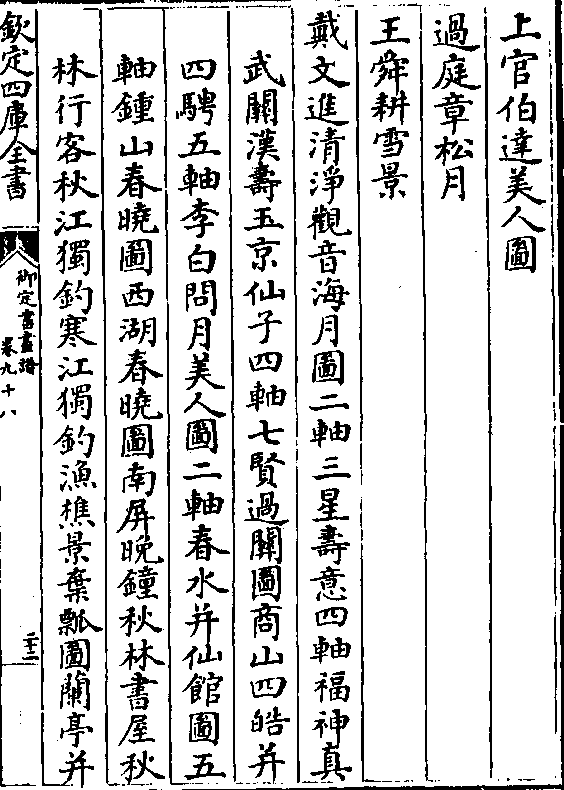 上官伯達美人圖
過庭章松月
王舜耕雪景
戴文進清淨觀音海月圖二軸三星壽意四軸福神真
武關漢壽玉京仙子四軸七賢過關圖商山四皓并
四騁五軸李白問月美人圖二軸春水并仙館圖五
軸鍾山春曉圖西湖春曉圖南屏晚鐘秋林書屋秋
林行客秋江獨釣寒江獨釣漁樵景棄瓢圖蘭亭并
欽定四庫全書
御定書畫譜
卷九十八
二十二